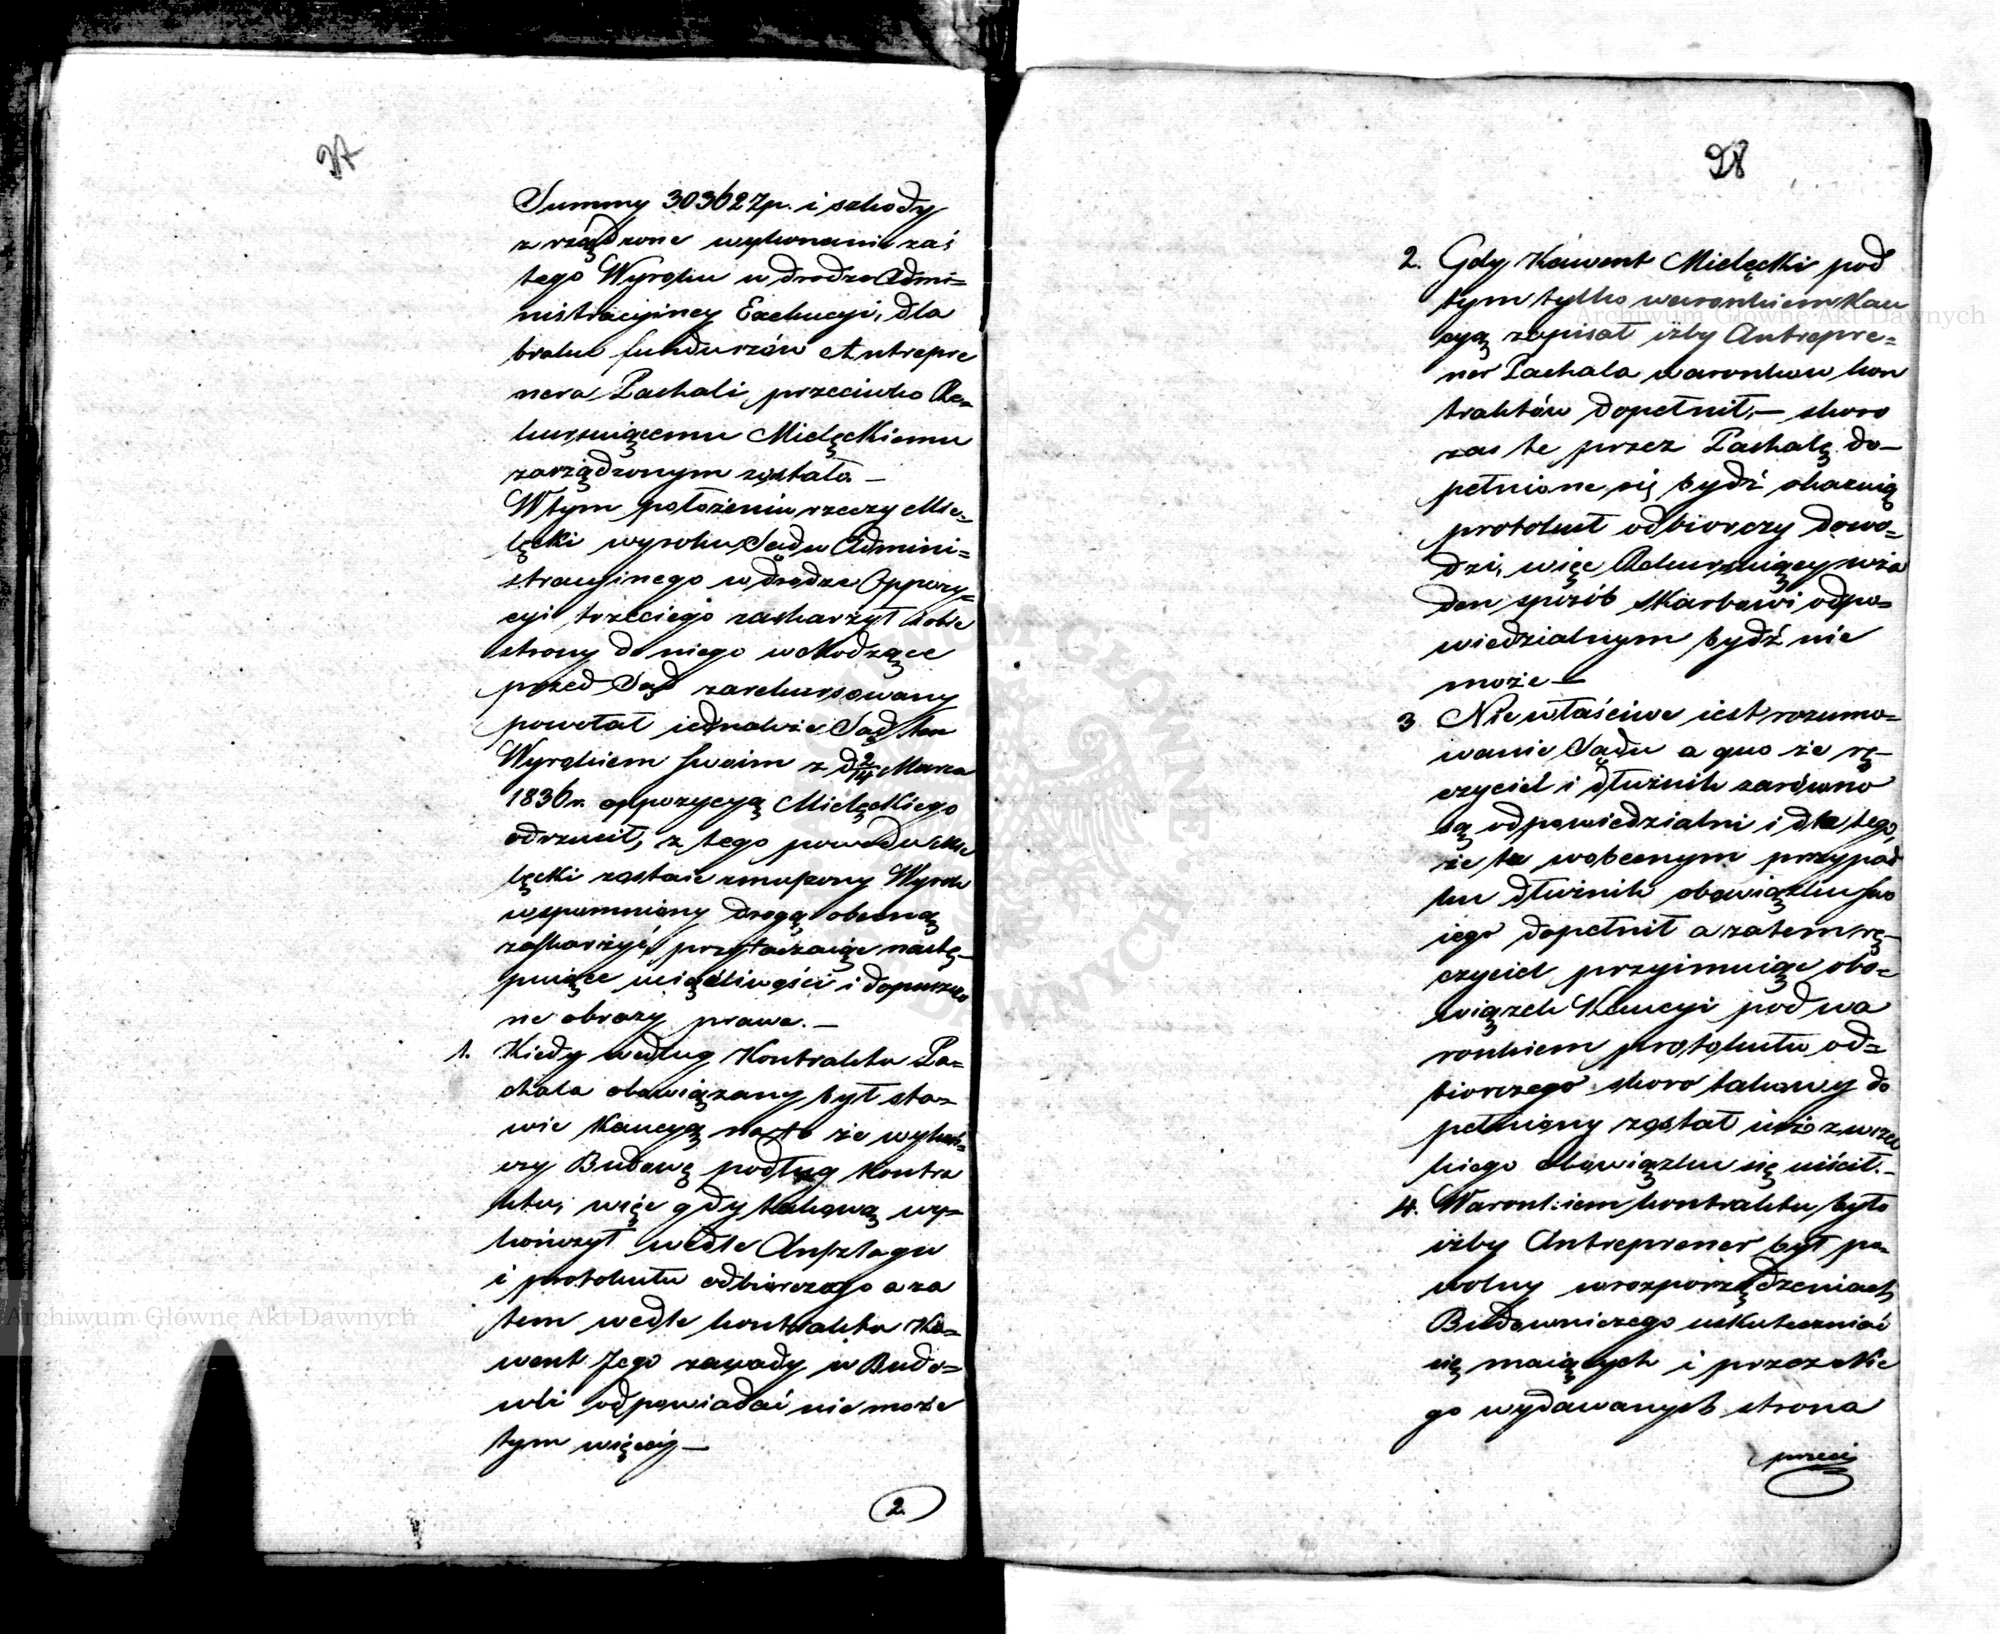 27
Summy 30362 Zp. i szkody
zrządzone wykonanie zaś
tego Wyroku w drodze Admi=
nistracyiney Exekucyi, dla
braku funduszów Antrepre
nera Pachali, przeciwko Re=
kursuiącemu Mielęckiemu
zarządzonym została —
W tym położeniu rzeczy Mie=
lęcki wyroku Sądu Admini=
stracyinego w drodze Oppozy=
cyi trzeciego zaskarżył obie
strony do niego wchodzące
przed Sąd zarekursowany
powołał iednakże Sąd ten
Wyrokiem swoim z d 2/14 Marca
1836 r. oppozycyą Mielęckiego
odrzucił, z tego powodu Mie
lęcki zostaie zmuszony Wyrok
wspomniony drogą obecną
zaskarżyć, przytaczaiąc nastę=
puiące uciążliwości i dopuszczo
ne obrazy prawa. —
1. Kiedy według Kontraktu Pa=
chala obowiązany był sta=
wić Kaucyą na to że wykoń=
czy Budowę podług Kontra
ktu, więc gdy takową wy=
kończył wedle Anszlagu
i protokułu odbiorczego a za
tem wedle kontraktu Ka=
went Jego zawady w Budo=
wli odpowiadać nie może
tym więcey —
2.
28
2. Gdy Kawent Mielęcki pod
tym tylko warunkiem Kau
cyą zapisał iżby Antrepre=
ner Pachala warunków kon
traktów dopełnił, — skoro
zas te przez Pachalę do=
pełnione się bydź okazuią
protokuł odbiorczy dowo=
dzi, więc Rekursuiący w ża
den sposób Skarbowi odpo=
wiedzialnym bydź nie
może —
3 Niewłaściwe iest rozumo=
wanie Sądu a quo że rę=
czyciel i dłużnik zarówno
są odpowiedzialni i dla tego,
że tu w obecnym przypad
ku dłużnik obowiązku swo
iego dopełnił a zatem rę=
czyciel przyimuiąc obo=
wiązek Kaucyi pod wa
runkiem protokułu od=
biorczego skoro takowy do
pełniony został iuż z wszel
kiego obowiązku się uiścił. —
4. Warunkiem kontraktu było
iżby Antreprener był po=
wolny w rozporządzeniach
Budowniczego uskuteczniać
się maiących i przez Nie
go wydawanych strona
przeci